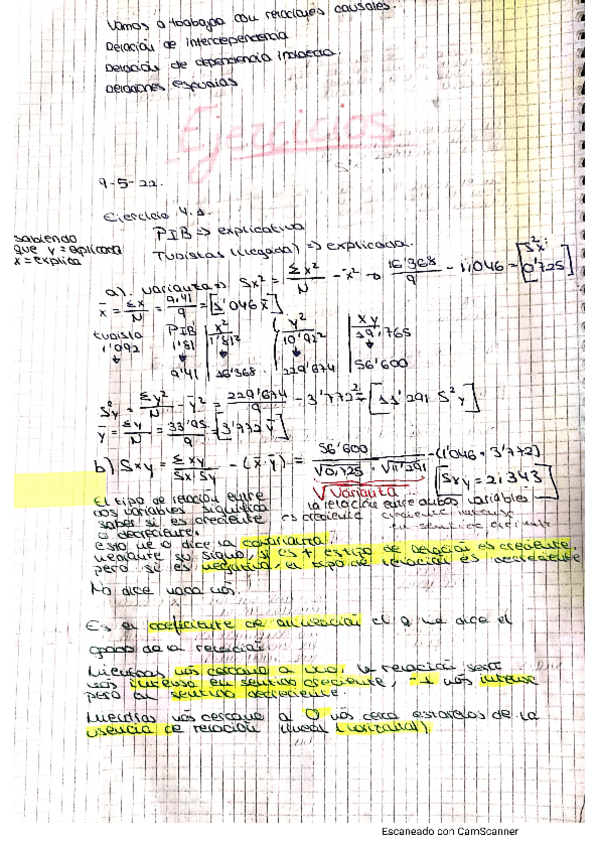 Vamos a trabajar con relaciones causales.
Relación de interdependencia
Relación de dependencia indirecta.
Relaciones espurias
Ejercicios
9-5-22.
Ejercicio 4.1
sabiendo
que y = explicada
x = explica
PIB => explicativa
Turistas (llegada) => explicada.
a). varianza => Sx² = Σx²/N - x̄² → 16'368/9 - 1,046 = [S²x: 0'725]
x̄ = Σx/N = 9,41/9 = [1'046 x̄]
turista PIB x² y² xy
1'092 1'81 1'81² 10'92² 19'765
9'41 16'368 229'674 56'600
S²y = Σy²/N - ȳ² = 229'674/9 - 3'772² = [11'291 S²y]
ȳ = Σy/N = 33'95/9 = [3'772 ȳ]
b) Sxy = Σxy/Sx/Sy - (x̄·ȳ) = 56'600/√0,725 · √11'291 - (1'046 · 3'772)
√varianza
[Sxy = 2,343]
El tipo de relación entre
dos variables significa
saber si es creciente
o decreciente.
la relación entre ambas variables
es creciente
esto me lo dice la covarianza
mediante su signo, si es + es tipo de relación es creciente
pero si es negativa, el tipo de relación es decreciente
No dice nada más.
Es el coeficiente de correlación el que me dice el
grado de la relación
Mientras más cercano a uno, la relación será
más intensa en sentido creciente, -1 más intensa
pero en sentido decreciente.
Mientras más cercano a 0 más cerca estaremos de la
ausencia de relación lineal (horizontal)
Escaneado con CamScanner